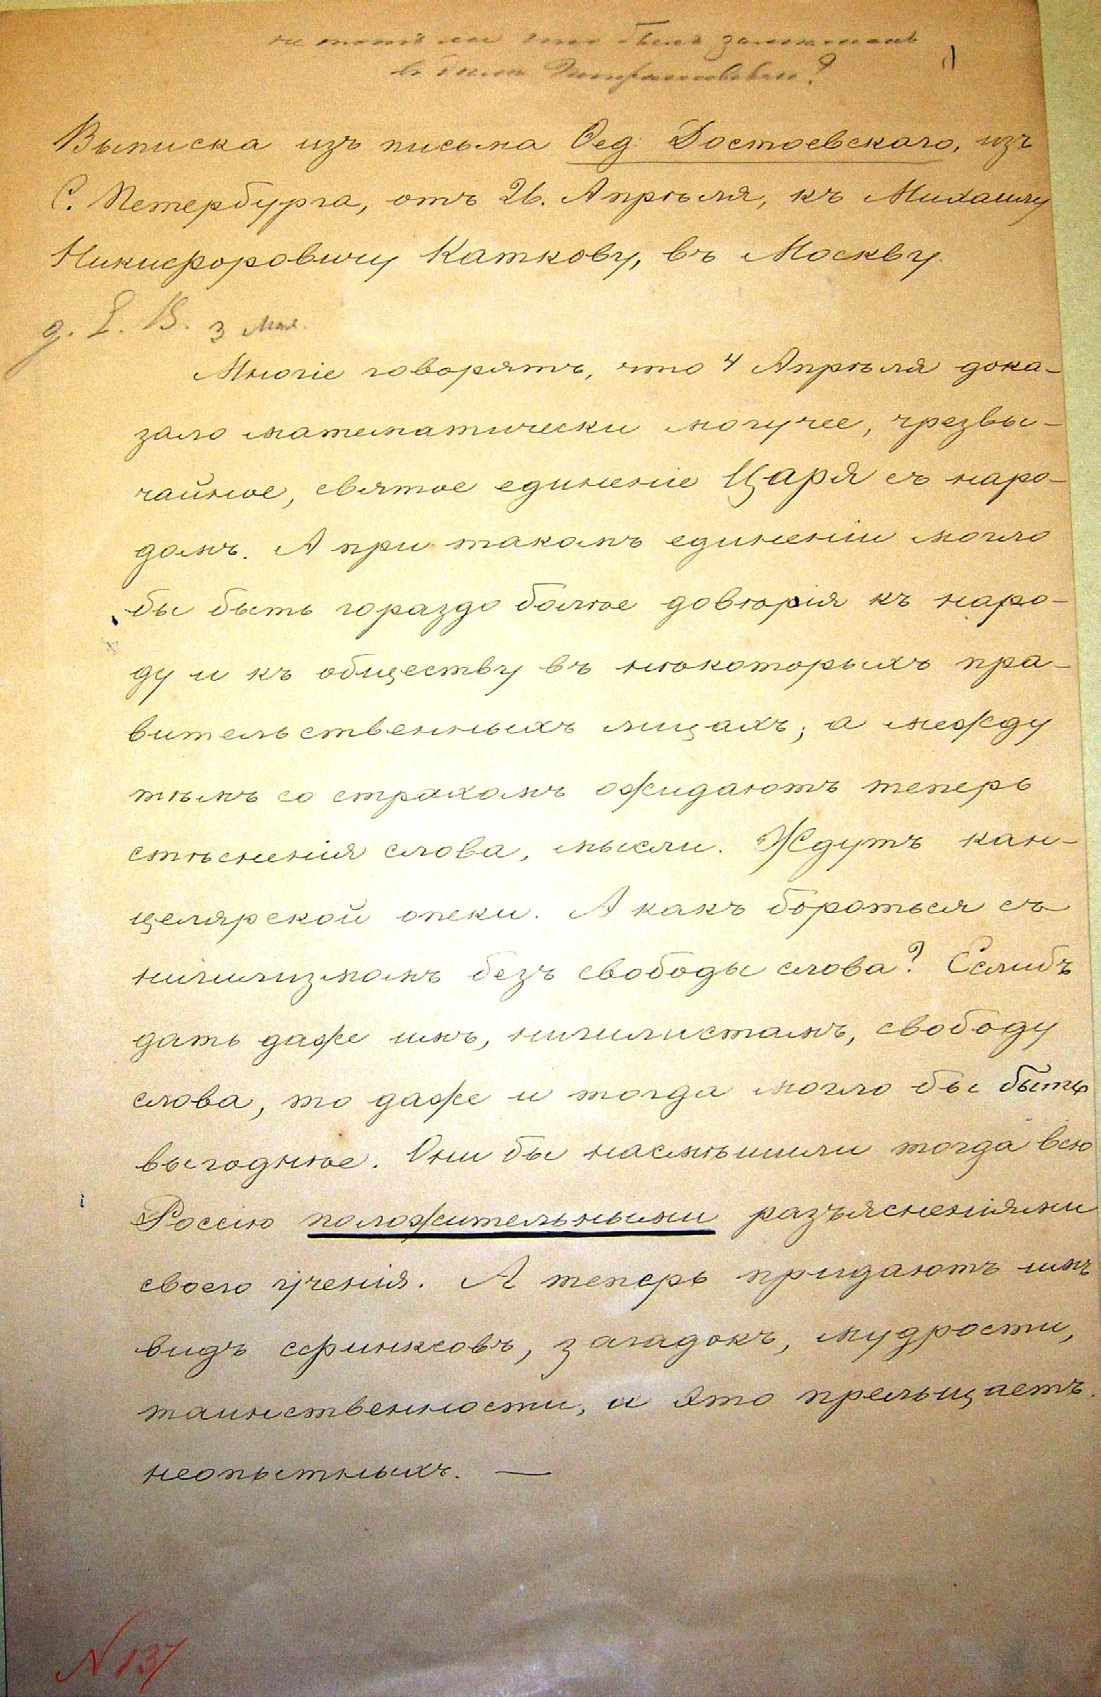 не тотъ ли что былъ замешанъ
въ дѣлѣ Петрашевскаго?
Выписка изъ письма Ѳед. Достоевскаго, изъ
С. Петербурга, отъ 26. Апрѣля, къ Михаилу
Никифоровичу Каткову, въ Москву.
д. Е. В. 3 Мая.
Многіе говорятъ, что 4 Апрѣля дока-
зало математически могучее, чрезвы-
чайное, святое единеніе Царя съ наро-
домъ. А при такомъ единеніи могло
бы быть гораздо болѣе довѣрія къ наро-
ду и къ обществу въ нѣкоторыхъ пра-
вительственныхъ лицахъ; а между
тѣмъ со страхомъ ожидаютъ теперь
стѣсненія слова, мысли. Ждутъ кан-
целярской опеки. А какъ бороться съ
нигилизмомъ безъ свободы слова? Еслибъ
дать даже имъ, нигилистамъ, свободу
слова, то даже и тогда могло бы быть
выгоднѣе. Они бы насмѣшили тогда всю
Россію положительными разъясненіями
своего ученія. А теперь придаютъ имъ
видъ сфинксовъ, загадокъ, мудрости,
таинственности, и это прельщаетъ
неопытныхъ. —
N 137